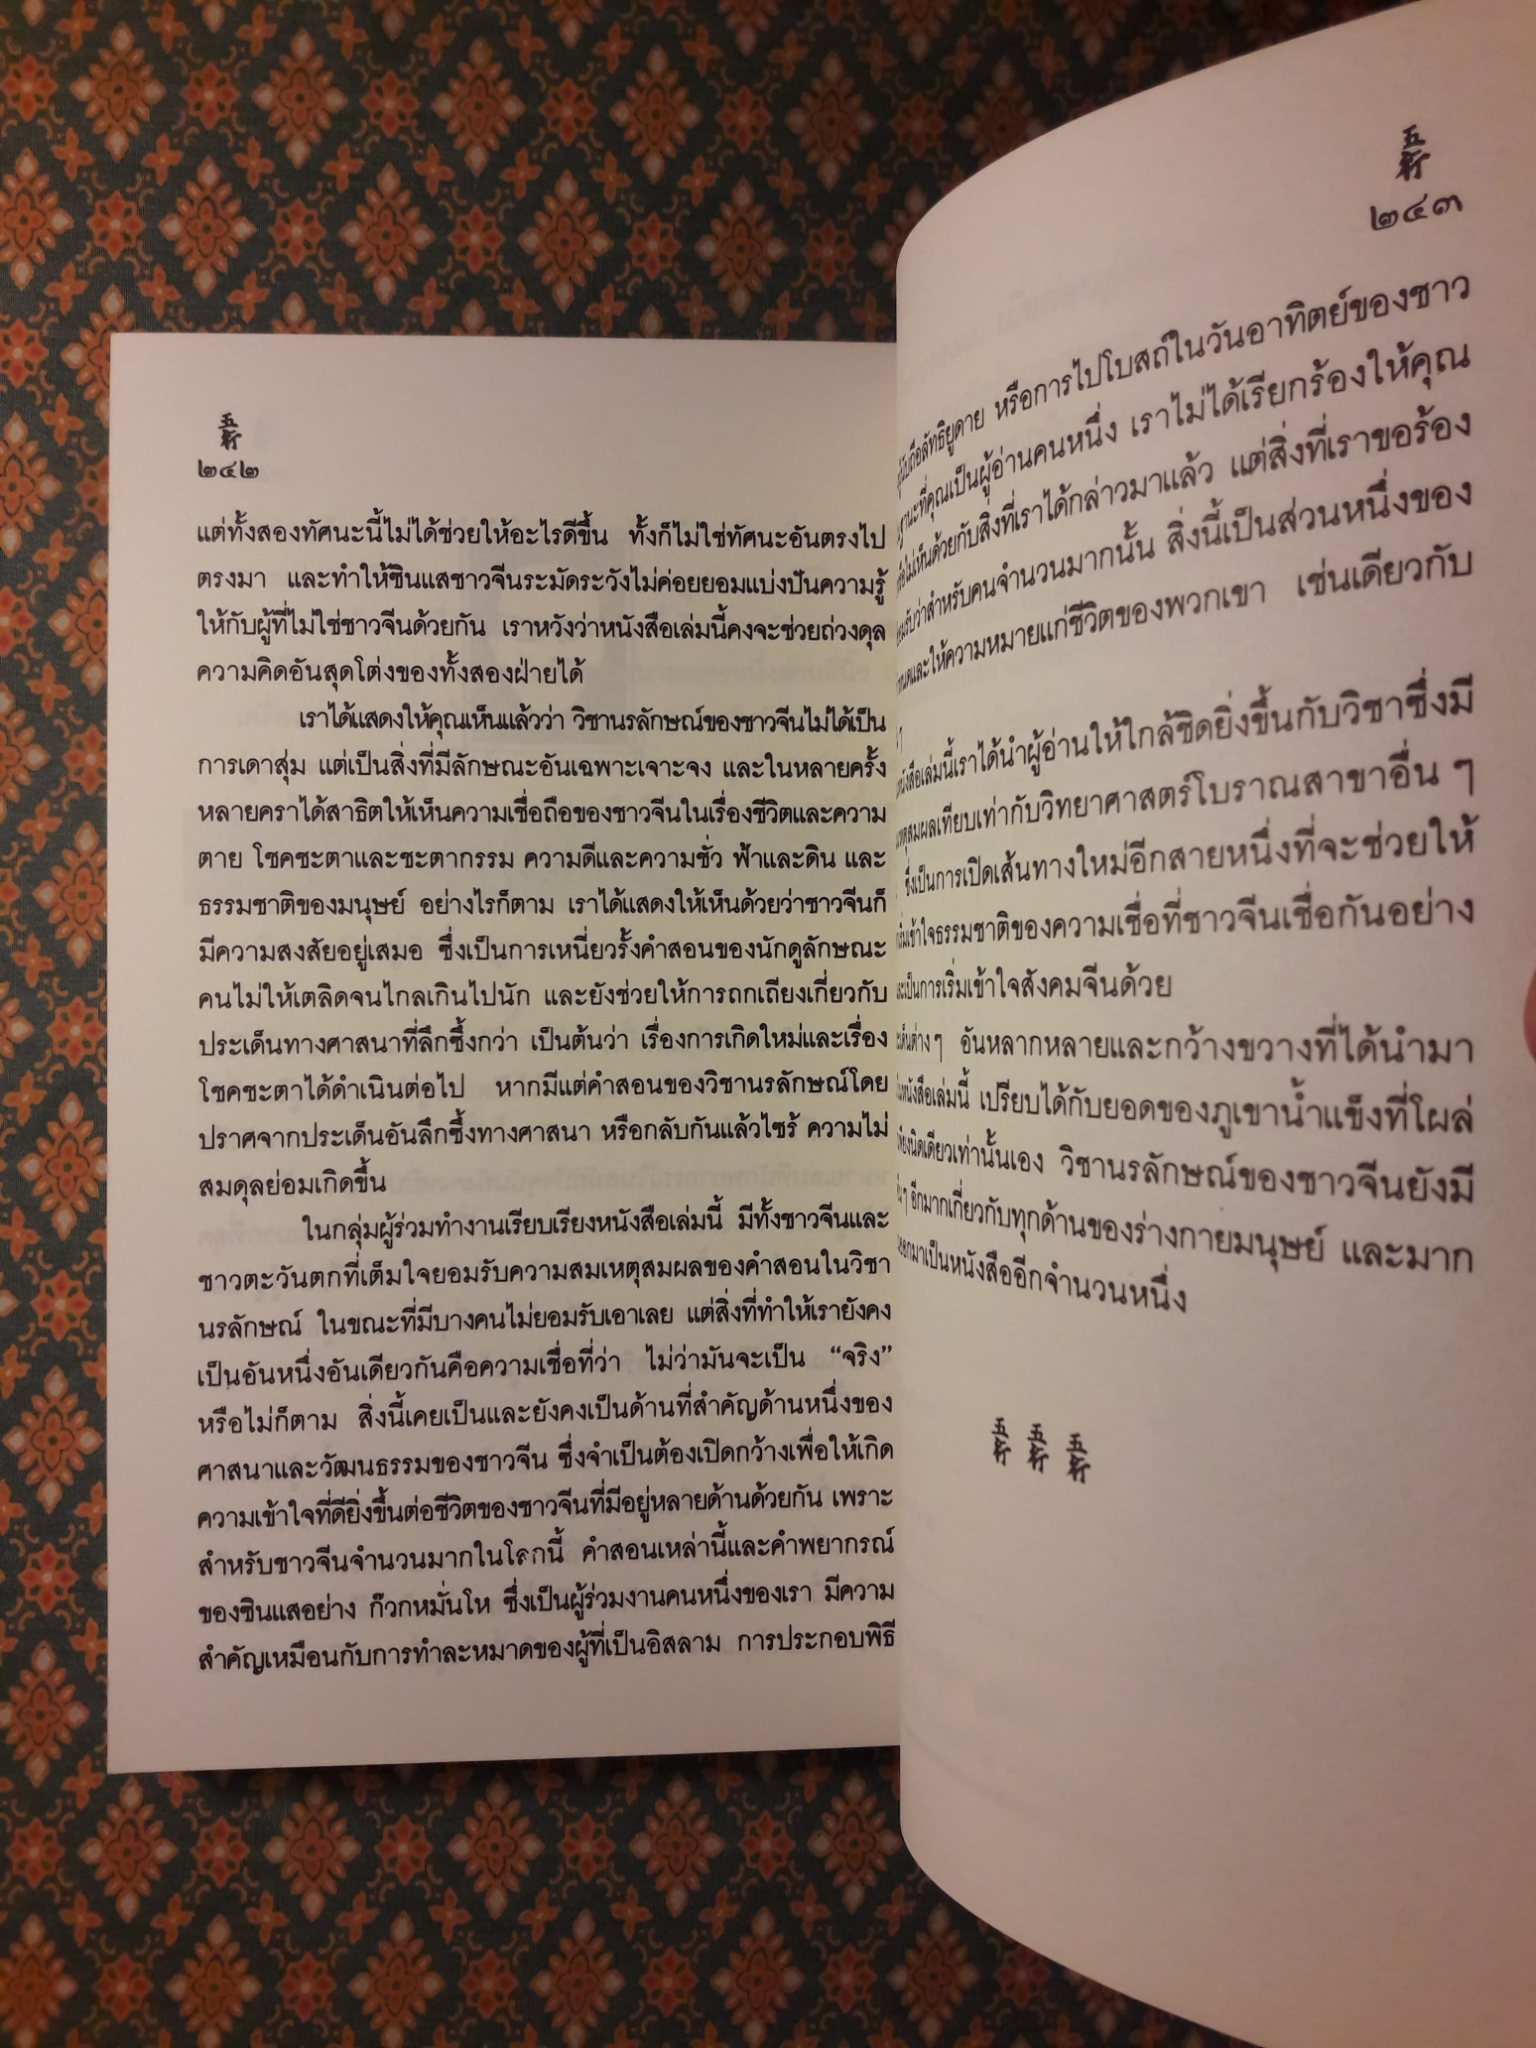 五行
๒๔๒
แต่ทั้งสองทัศนะนี้ไม่ได้ช่วยให้อะไรดีขึ้น ทั้งก็ไม่ใช่ทัศนะอันตรงไป
ตรงมา และทำให้ซินแสชาวจีนระมัดระวังไม่ค่อยยอมแบ่งปันความรู้
ให้กับผู้ที่ไม่ใช่ชาวจีนด้วยกัน เราหวังว่าหนังสือเล่มนี้คงจะช่วยถ่วงดุล
ความคิดอันสุดโต่งของทั้งสองฝ่ายได้
เราได้แสดงให้คุณเห็นแล้วว่า วิชานรลักษณ์ของชาวจีนไม่ได้เป็น
การเดาสุ่ม แต่เป็นสิ่งที่มีลักษณะอันเฉพาะเจาะจง และในหลายครั้ง
หลายคราได้สาธิตให้เห็นความเชื่อถือของชาวจีนในเรื่องชีวิตและความ
ตาย โชคชะตาและชะตากรรม ความดีและความชั่ว ฟ้าและดิน และ
ธรรมชาติของมนุษย์ อย่างไรก็ตาม เราได้แสดงให้เห็นด้วยว่าชาวจีนก็
มีความสงสัยอยู่เสมอ ซึ่งเป็นการเหนี่ยวรั้งคำสอนของนักดูลักษณะ
คนไม่ให้เตลิดจนไกลเกินไปนัก และยังช่วยให้การถกเถียงเกี่ยวกับ
ประเด็นทางศาสนาที่ลึกซึ้งกว่า เป็นต้นว่า เรื่องการเกิดใหม่และเรื่อง
โชคชะตาได้ดำเนินต่อไป หากมีแต่คำสอนของวิชานรลักษณ์โดย
ปราศจากประเด็นอันลึกซึ้งทางศาสนา หรือกลับกันแล้วไซร้ ความไม่
สมดุลย่อมเกิดขึ้น
ในกลุ่มผู้ร่วมทำงานเรียบเรียงหนังสือเล่มนี้ มีทั้งชาวจีนและ
ชาวตะวันตกที่เต็มใจยอมรับความสมเหตุสมผลของคำสอนในวิชา
นรลักษณ์ ในขณะที่มีบางคนไม่ยอมรับเอาเลย แต่สิ่งที่ทำให้เรายังคง
เป็นอันหนึ่งอันเดียวกันคือความเชื่อที่ว่า ไม่ว่ามันจะเป็น “จริง”
หรือไม่ก็ตาม สิ่งนี้เคยเป็นและยังคงเป็นด้านที่สำคัญด้านหนึ่งของ
ศาสนาและวัฒนธรรมของชาวจีน ซึ่งจำเป็นต้องเปิดกว้างเพื่อให้เกิด
ความเข้าใจที่ดียิ่งขึ้นต่อชีวิตของชาวจีนที่มีอยู่หลายด้านด้วยกัน เพราะ
สำหรับชาวจีนจำนวนมากในโลกนี้ คำสอนเหล่านี้และคำพยากรณ์
ของซินแสอย่าง ก๊วกหมั่นโห ซึ่งเป็นผู้ร่วมงานคนหนึ่งของเรา มีความ
สำคัญเหมือนกับการทำละหมาดของผู้ที่เป็นอิสลาม การประกอบพิธี
五行
๒๔๓
นับถือลัทธิยูดาย หรือการไปโบสถ์ในวันอาทิตย์ของชาว
ที่คุณเป็นผู้อ่านคนหนึ่ง เราไม่ได้เรียกร้องให้คุณ
ไม่เห็นด้วยกับสิ่งที่เราได้กล่าวมาแล้ว แต่สิ่งที่เราขอร้อง
ว่าสำหรับคนจำนวนมากนั้น สิ่งนี้เป็นส่วนหนึ่งของ
และให้ความหมายแก่ชีวิตของพวกเขา เช่นเดียวกับ
หนังสือเล่มนี้เราได้นำผู้อ่านให้ใกล้ชิดยิ่งขึ้นกับวิชาซึ่งมี
เหตุสมผลเทียบเท่ากับวิทยาศาสตร์โบราณสาขาอื่น ๆ
ซึ่งเป็นการเปิดเส้นทางใหม่อีกสายหนึ่งที่จะช่วยให้
เข้าใจธรรมชาติของความเชื่อที่ชาวจีนเชื่อกันอย่าง
เป็นการเริ่มเข้าใจสังคมจีนด้วย
ต่างๆ อันหลากหลายและกว้างขวางที่ได้นำมา
หนังสือเล่มนี้ เปรียบได้กับยอดของภูเขาน้ำแข็งที่โผล่
เพียงนิดเดียวเท่านั้นเอง วิชานรลักษณ์ของชาวจีนยังมี
ๆ อีกมากเกี่ยวกับทุกด้านของร่างกายมนุษย์ และมาก
ออกมาเป็นหนังสืออีกจำนวนหนึ่ง
五行 五行 五行